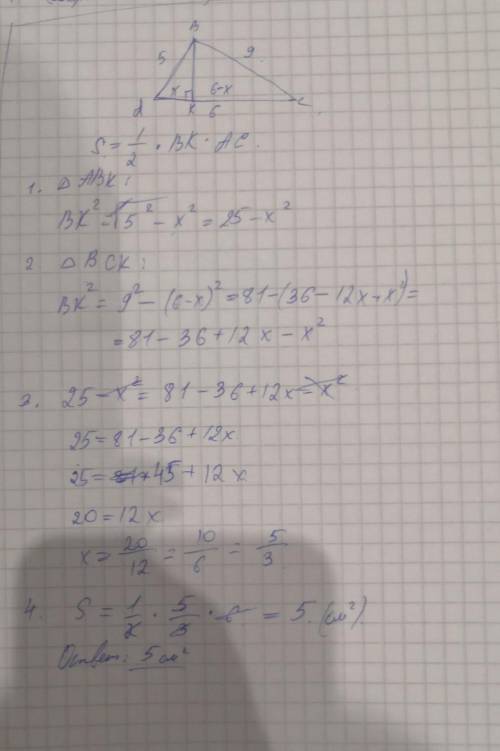 B
5 9
x 6-x
A K 6 C
S = 1/2 · BK · AC.
1. △ ABK:
BK² = 5² - x² = 25 - x²
2 △ BCK:
BK² = 9² - (6-x)² = 81 - (36 - 12x + x²) =
= 81 - 36 + 12x - x²
3. 25 - x² = 81 - 36 + 12x - x²
25 = 81 - 36 + 12x
25 = 45 + 12x
20 = 12x
x = 20/12 = 10/6 = 5/3
4. S = 1/2 · 5/3 · 6 = 5 (см²).
Ответ: 5 см²